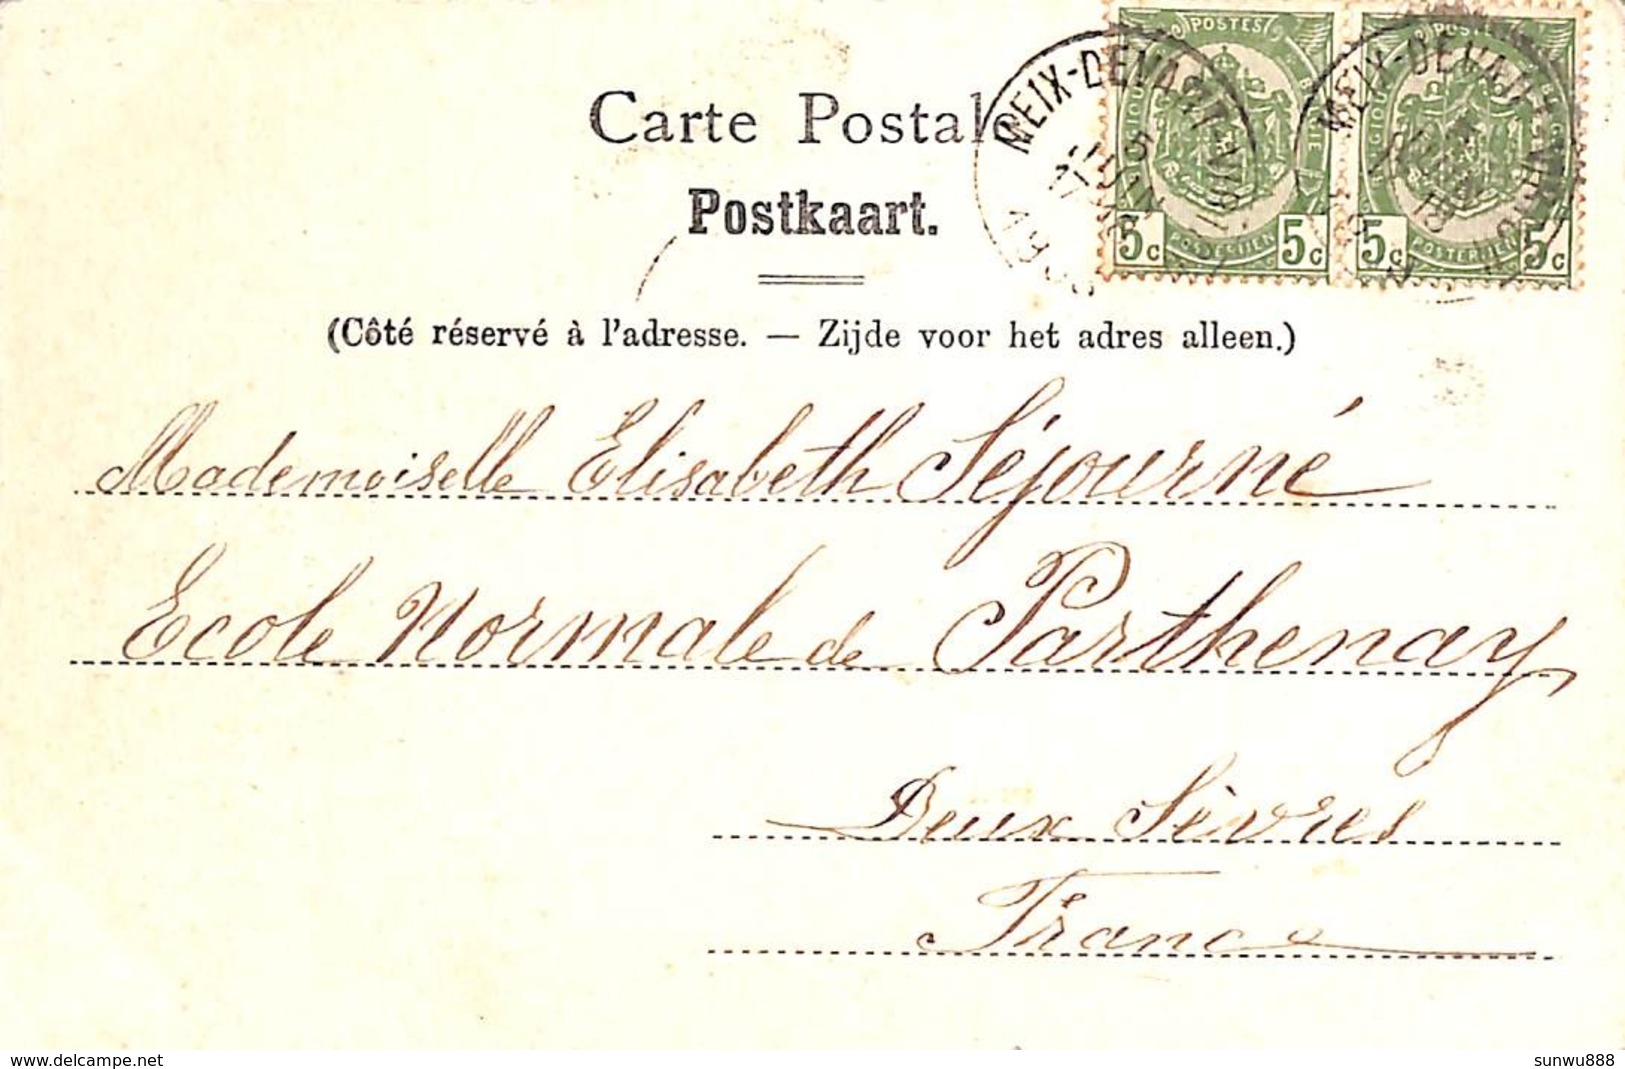 Carte Postale
Postkaart.
(Côté réservé à l'adresse. — Zijde voor het adres alleen.)
POSTES
5c 5c
5c 5c
MEIX-DEVANT-VIRTON
Mademoiselle Elisabeth Séjourné
Ecole Normale de Parthenay
Deux Sèvres
France
https://www.delcampe.net
sunwu888